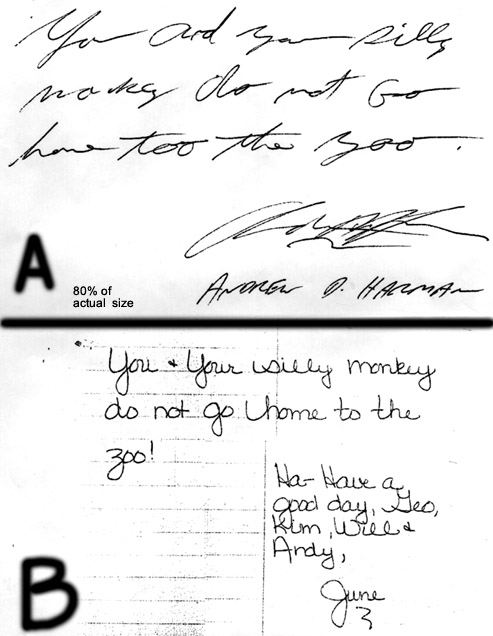 You and your silly
monkey do not Go
home too the zoo.
ANDREW D. HARMAN
A
80% of
actual size
You & Your silly monkey
do not go home to the
zoo!
Ha- Have a
good day, Geo,
Kim, Will &
Andy,
June
3
B